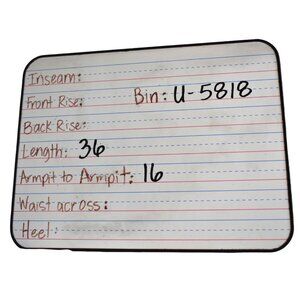 Inseam:
Front Rise: Bin: U-5818
Back Rise:
Length: 36
Armpit to Armpit: 16
Waist across:
Heel: